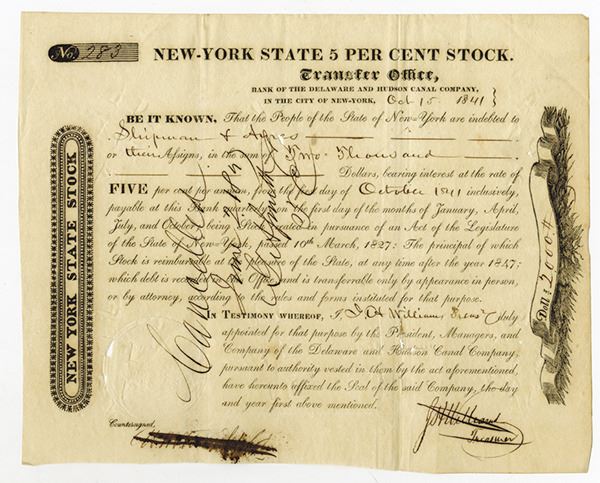 No. 283
NEW-YORK STATE 5 PER CENT STOCK.
Transfer Office,
BANK OF THE DELAWARE AND HUDSON CANAL COMPANY,
IN THE CITY OF NEW-YORK, Oct 15 1841
BE IT KNOWN, That the People of the State of New-York are indebted to
Shipman &
or their Assigns, in the sum of Two Thousand
Dollars, bearing interest at the rate of
FIVE per cent per annum, from the first day of October 1841 inclusively,
payable at this Bank quarterly on the first day of the months of January, April,
July, and October, being Stock created in pursuance of an Act of the Legislature
of the State of New-York, passed 10th March, 1827: The principal of which
Stock is reimbursable at the pleasure of the State, at any time after the year 1847:
which debt is recorded in this Office, and is transferrable only by appearance in person,
or by attorney, according to the rules and forms instituted for that purpose.
IN TESTIMONY WHEREOF, I, J. H Williams duly
appointed for that purpose by the President, Managers, and
Company of the Delaware and Hudson Canal Company,
pursuant to authority vested in them by the act aforementioned,
have hereunto affixed the Seal of the said Company, the day
and year first above mentioned.
Countersigned,
J H Williams
Treasurer
NEW YORK STATE STOCK
Doll s 2000
Cancelled